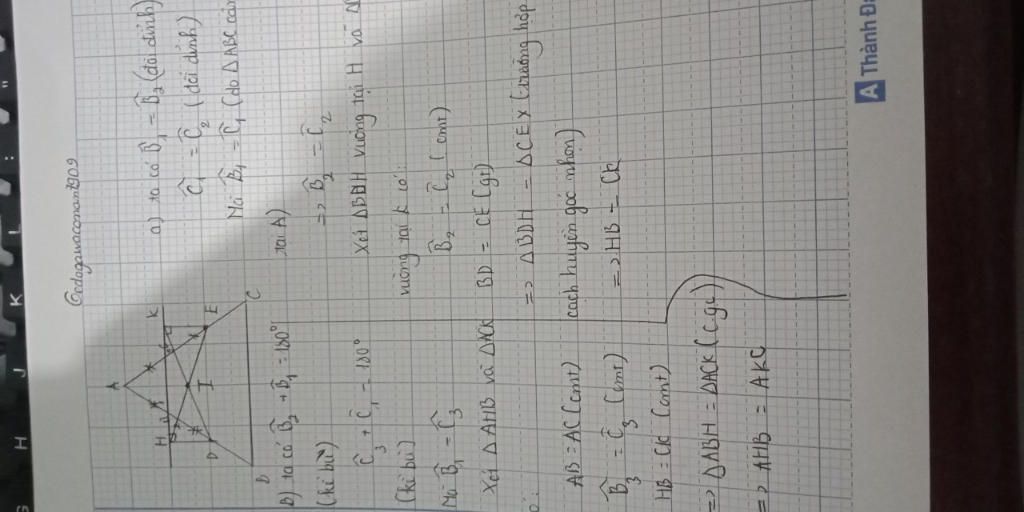 @edogawaconan1909
a) ta có B̂₁ = B̂₂ (đối đỉnh)
Ĉ₁ = Ĉ₂ (đối đỉnh)
Mà B̂₁ = Ĉ₁ (do ΔABC cân
tại A)
=> B̂₂ = Ĉ₂
Xét ΔBDH vuông tại H và Δ
vuông tại K có:
B̂₂ = Ĉ₂ (cmt)
BD = CE (gt)
=> ΔBDH = ΔCEK (trường hợp
cạch huyền góc nhọn)
=> HB = CK
A
H
K
D
I
E
B
C
B) ta có B̂₂ + B̂₁ = 180°
(kề bù)
Ĉ₃ + Ĉ₁ = 180°
(kề bù)
Mà B̂₁ = Ĉ₃
Xét ΔAHB và ΔACK
AB = AC (cmt)
B̂₃ = Ĉ₃ (cmt)
HB = CK (cmt)
=> ΔABH = ΔACK (c.g.c)
=> AHB = AKC
A Thành Đạ